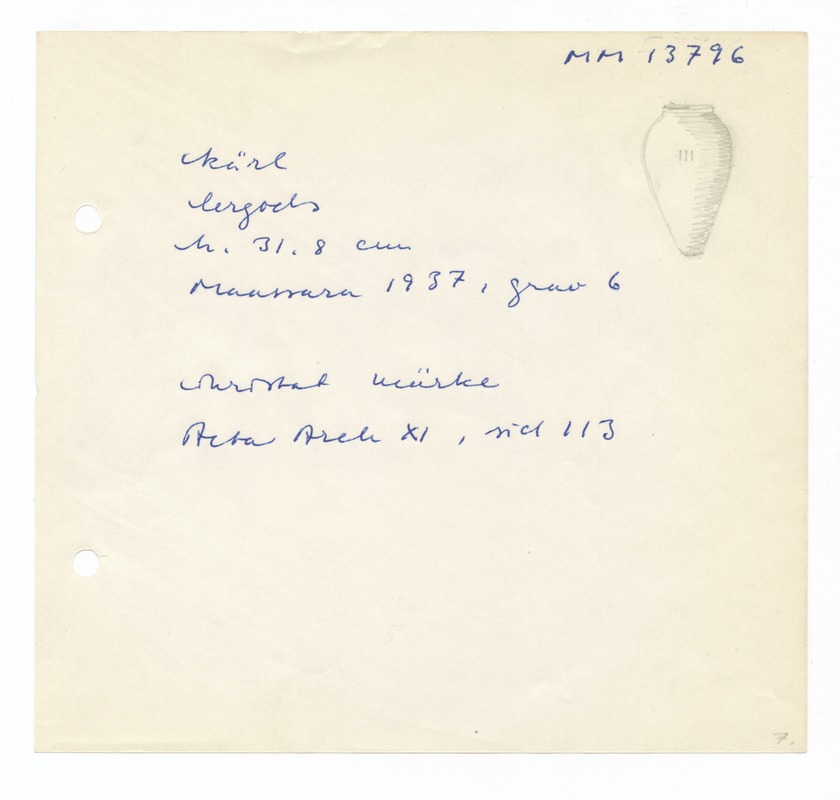 MM 13796
kärl
lergods
h. 31.8 cm
Maassara 1937, grav 6
inristat märke
Acta Arch XI, sid 113
7.